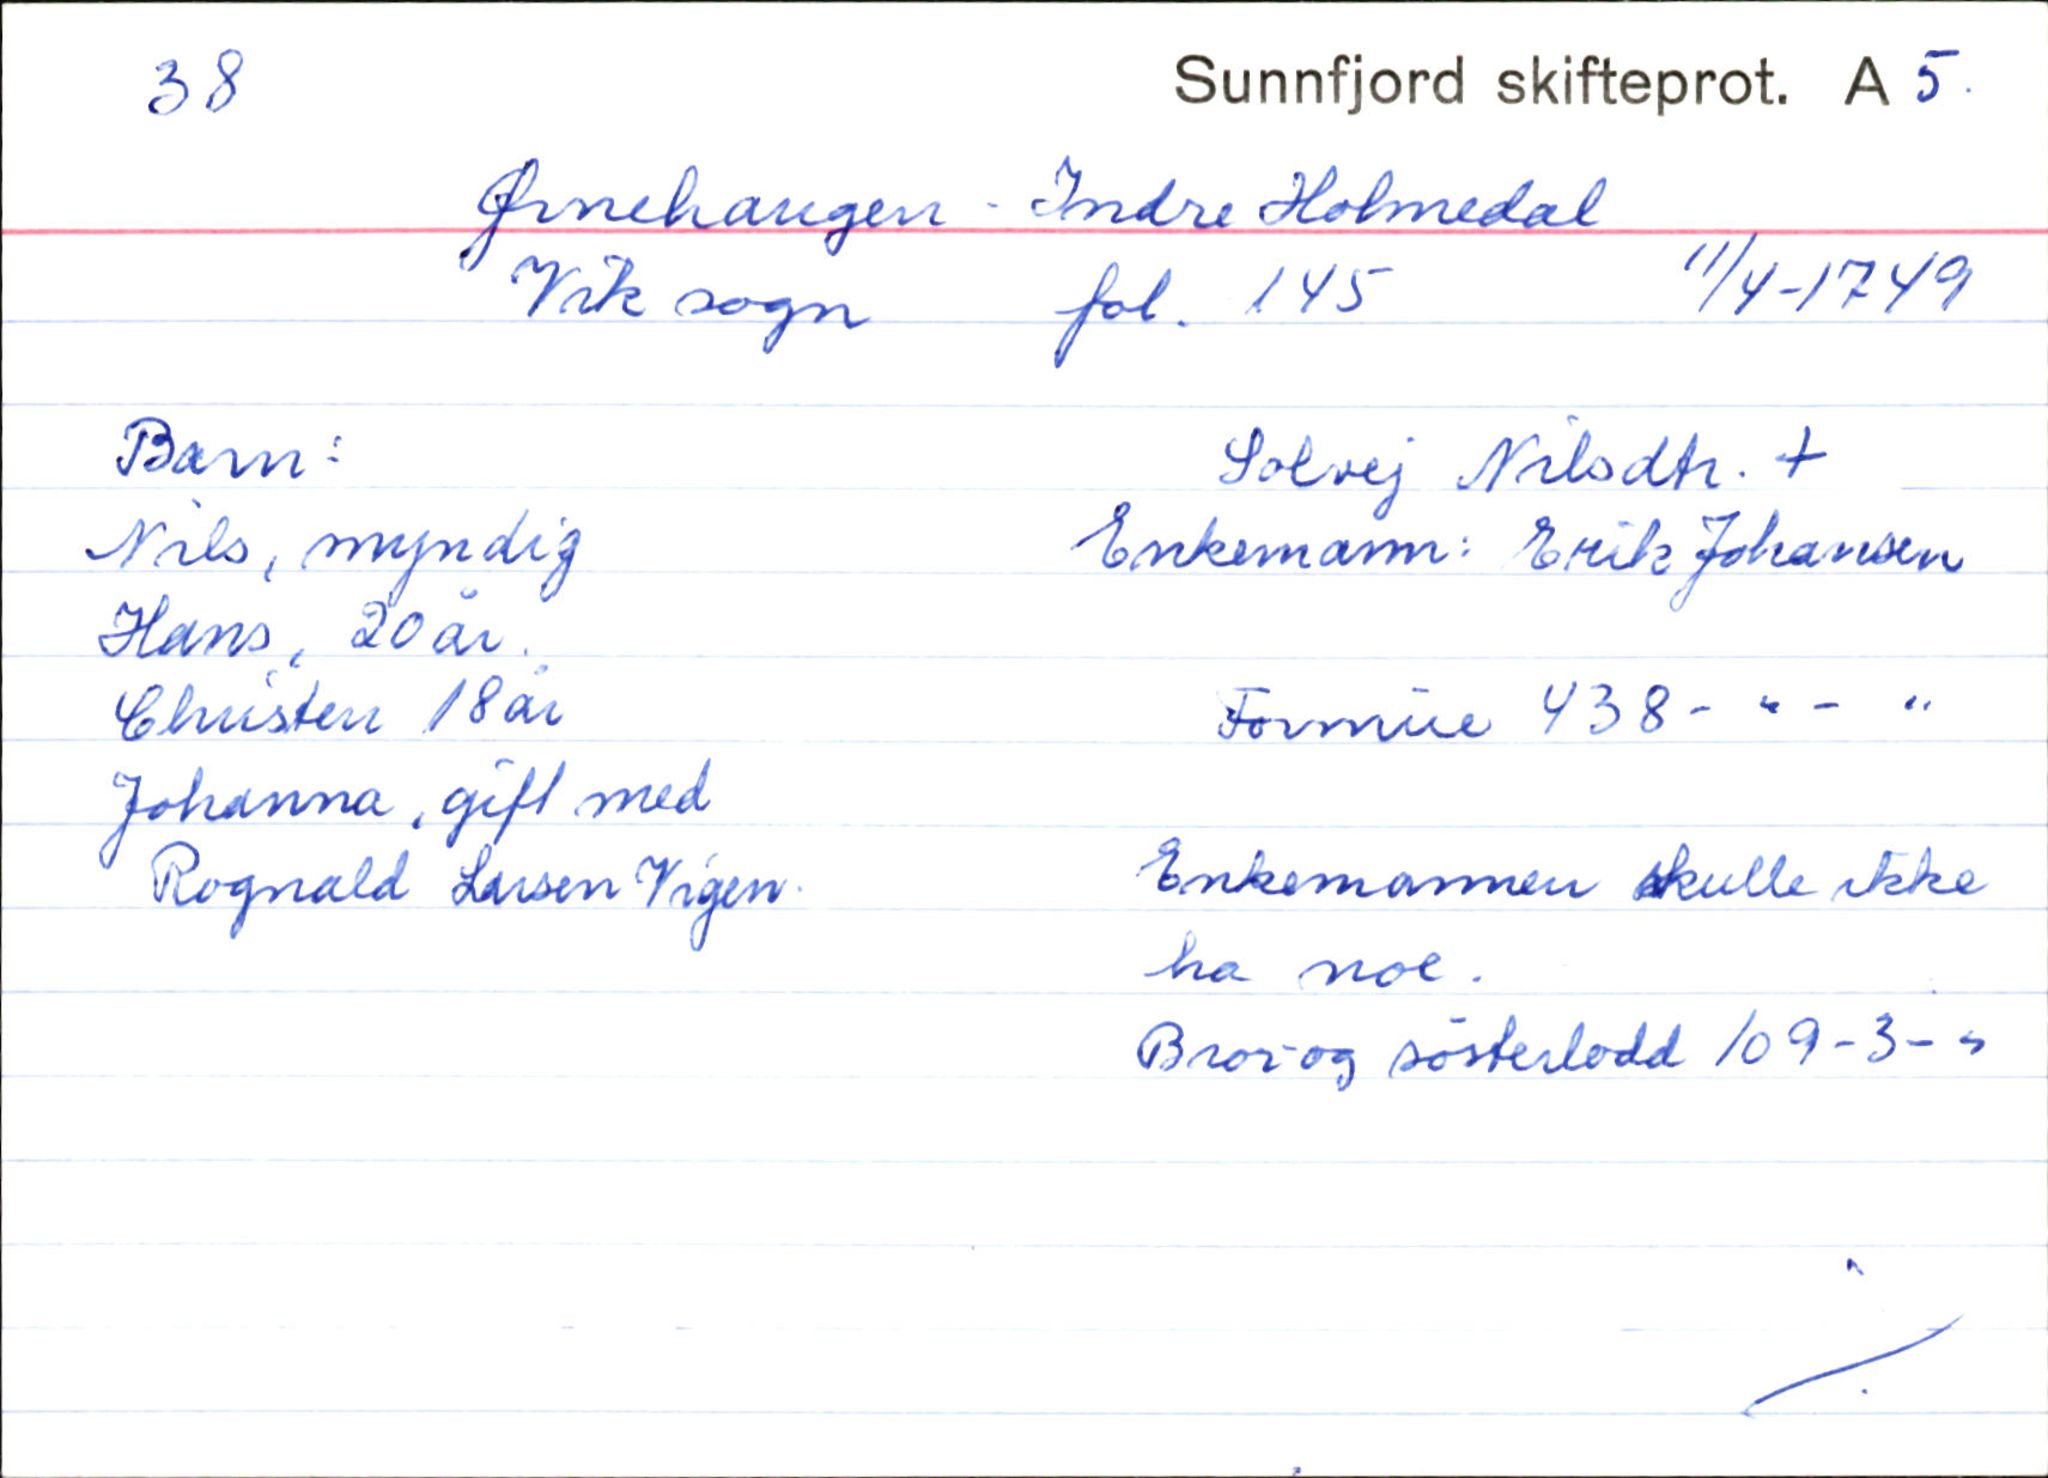 38
Sunnfjord skifteprot. A 5.
Ørnehaugen - Indre Holmedal
Vik sogn fol. 145 11/4-1749
Barn:
Nils, myndig
Hans, 20 år.
Christen 18 år
Johanna, gift med
Rognald Larsen Vigen.
Solvej Nilsdtr. +
Enkemann: Erik Johansen
Formue 438 - " - "
Enkemannen skulle ikke
ha noe.
Bror-og sösterlodd 109-3- "